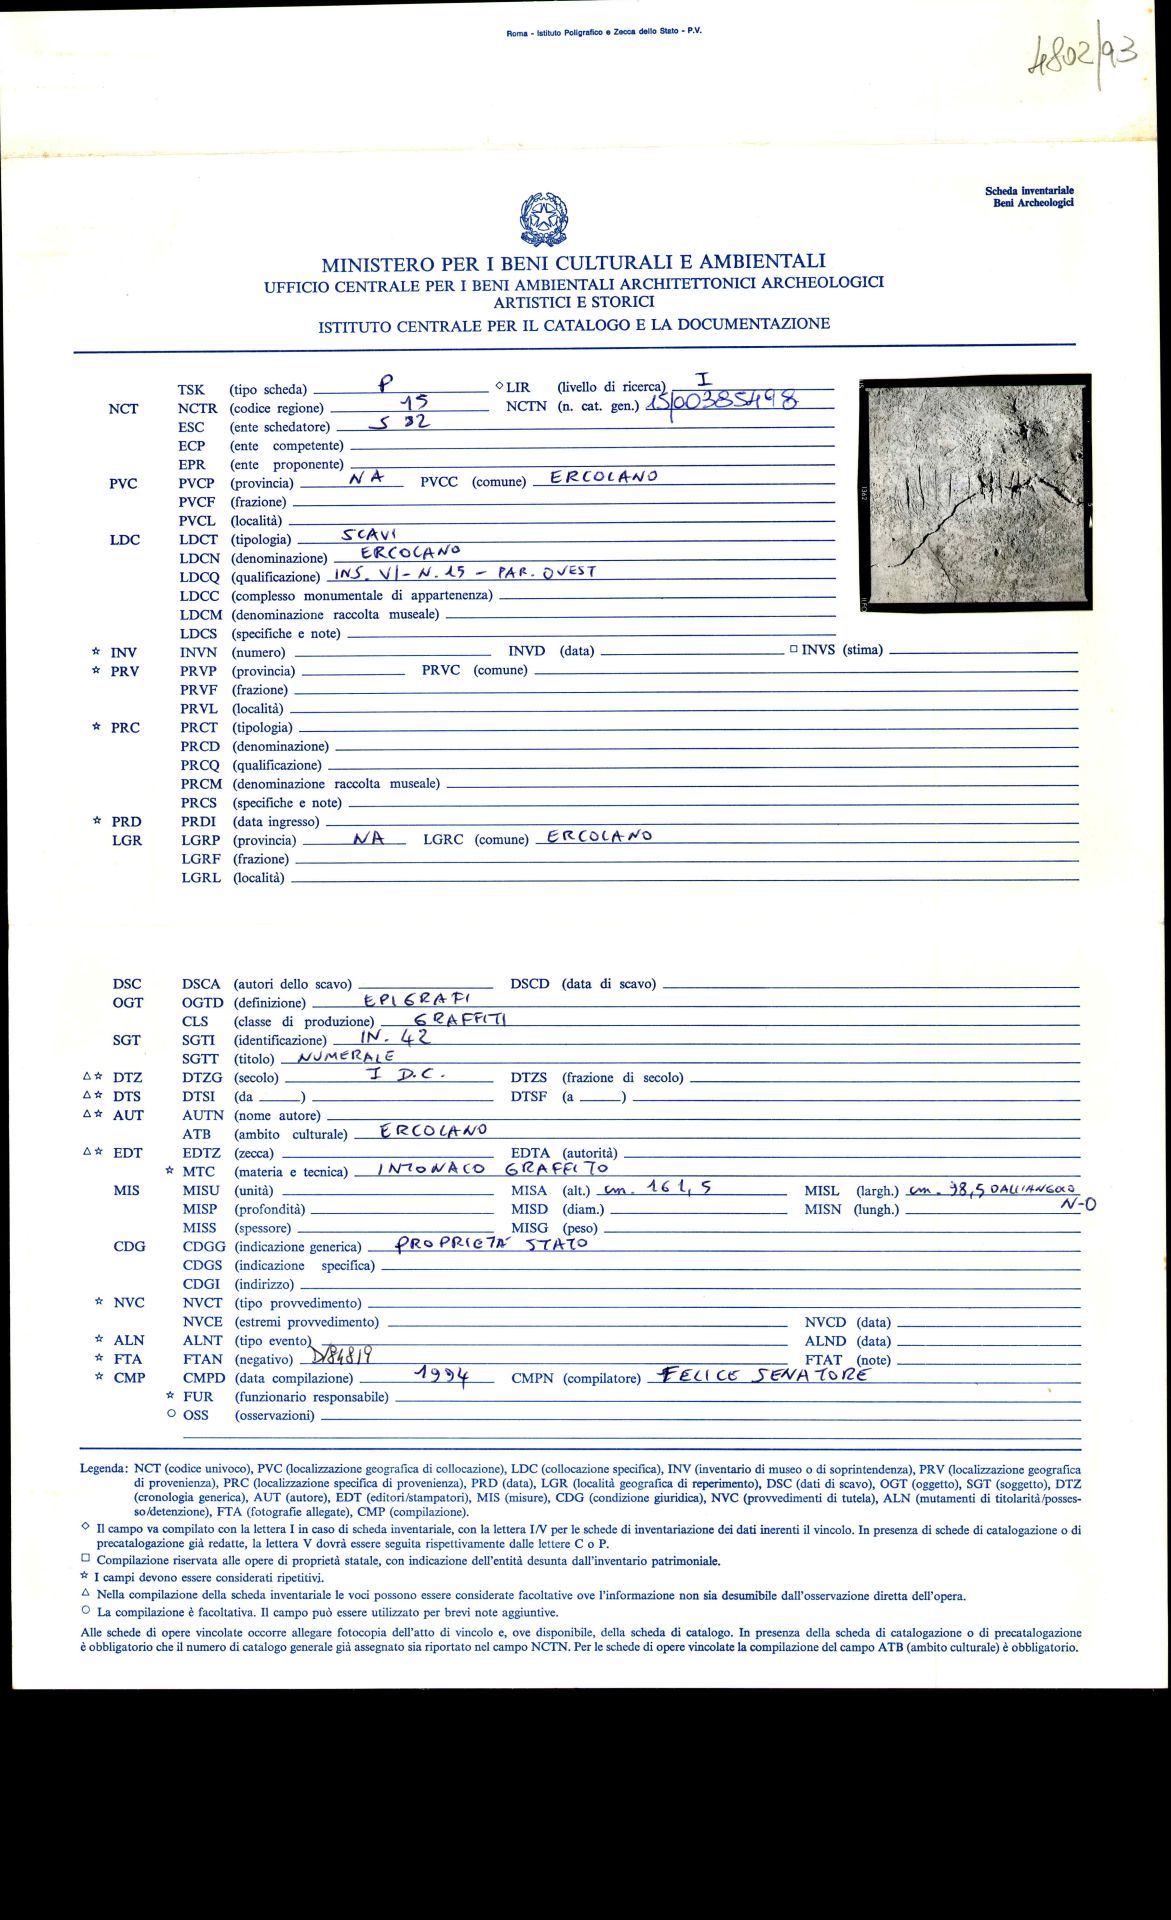 Roma - Istituto Poligrafico e Zecca dello Stato - P.V.
4802/93
Scheda inventariale
Beni Archeologici
MINISTERO PER I BENI CULTURALI E AMBIENTALI
UFFICIO CENTRALE PER I BENI AMBIENTALI ARCHITETTONICI ARCHEOLOGICI
ARTISTICI E STORICI
ISTITUTO CENTRALE PER IL CATALOGO E LA DOCUMENTAZIONE
TSK (tipo scheda) P ◇ LIR (livello di ricerca) I
NCT NCTR (codice regione) 15 NCTN (n. cat. gen.) 15/00385498
ESC (ente schedatore) S 32
ECP (ente competente)
EPR (ente proponente)
PVC PVCP (provincia) NA PVCC (comune) ERCOLANO
PVCF (frazione)
PVCL (località)
LDC LDCT (tipologia) SCAVI
LDCN (denominazione) ERCOLANO
LDCQ (qualificazione) INS. VI - N. 15 - PAR. OVEST
LDCC (complesso monumentale di appartenenza)
LDCM (denominazione raccolta museale)
LDCS (specifiche e note)
☆ INV INVN (numero) INVD (data) □ INVS (stima)
☆ PRV PRVP (provincia) PRVC (comune)
PRVF (frazione)
PRVL (località)
☆ PRC PRCT (tipologia)
PRCD (denominazione)
PRCQ (qualificazione)
PRCM (denominazione raccolta museale)
PRCS (specifiche e note)
☆ PRD PRDI (data ingresso)
LGR LGRP (provincia) NA LGRC (comune) ERCOLANO
LGRF (frazione)
LGRL (località)
DSC DSCA (autori dello scavo) DSCD (data di scavo)
OGT OGTD (definizione) EPIGRAFI
CLS (classe di produzione) GRAFFITI
SGT SGTI (identificazione) IN. 42
SGTT (titolo) NUMERALE
△☆ DTZ DTZG (secolo) I D.C. DTZS (frazione di secolo)
△☆ DTS DTSI (da ) DTSF (a )
△☆ AUT AUTN (nome autore)
ATB (ambito culturale) ERCOLANO
△☆ EDT EDTZ (zecca) EDTA (autorità)
☆ MTC (materia e tecnica) INTONACO GRAFFITO
MIS MISU (unità) MISA (alt.) cm. 161,5 MISL (largh.) cm. 98,5 DALL'ANGOLO
N-O
MISP (profondità) MISD (diam.) MISN (lungh.)
MISS (spessore) MISG (peso)
CDG CDGG (indicazione generica) PROPRIETÀ STATO
CDGS (indicazione specifica)
CDGI (indirizzo)
☆ NVC NVCT (tipo provvedimento)
NVCE (estremi provvedimento) NVCD (data)
☆ ALN ALNT (tipo evento) ALND (data)
☆ FTA FTAN (negativo) D/84819 FTAT (note)
☆ CMP CMPD (data compilazione) 1994 CMPN (compilatore) FELICE SENATORE
☆ FUR (funzionario responsabile)
○ OSS (osservazioni)
Legenda: NCT (codice univoco), PVC (localizzazione geografica di collocazione), LDC (collocazione specifica), INV (inventario di museo o di soprintendenza), PRV (localizzazione geografica
di provenienza), PRC (localizzazione specifica di provenienza), PRD (data), LGR (località geografica di reperimento), DSC (dati di scavo), OGT (oggetto), SGT (soggetto), DTZ
(cronologia generica), AUT (autore), EDT (editori/stampatori), MIS (misure), CDG (condizione giuridica), NVC (provvedimenti di tutela), ALN (mutamenti di titolarità/posses-
so/detenzione), FTA (fotografie allegate), CMP (compilazione).
◇ Il campo va compilato con la lettera I in caso di scheda inventariale, con la lettera I/V per le schede di inventariazione dei dati inerenti il vincolo. In presenza di schede di catalogazione o di
precatalogazione già redatte, la lettera V dovrà essere seguita rispettivamente dalle lettere C o P.
□ Compilazione riservata alle opere di proprietà statale, con indicazione dell'entità desunta dall'inventario patrimoniale.
☆ I campi devono essere considerati ripetitivi.
△ Nella compilazione della scheda inventariale le voci possono essere considerate facoltative ove l'informazione non sia desumibile dall'osservazione diretta dell'opera.
○ La compilazione è facoltativa. Il campo può essere utilizzato per brevi note aggiuntive.
Alle schede di opere vincolate occorre allegare fotocopia dell'atto di vincolo e, ove disponibile, della scheda di catalogo. In presenza della scheda di catalogazione o di precatalogazione
è obbligatorio che il numero di catalogo generale già assegnato sia riportato nel campo NCTN. Per le schede di opere vincolate la compilazione del campo ATB (ambito culturale) è obbligatorio.